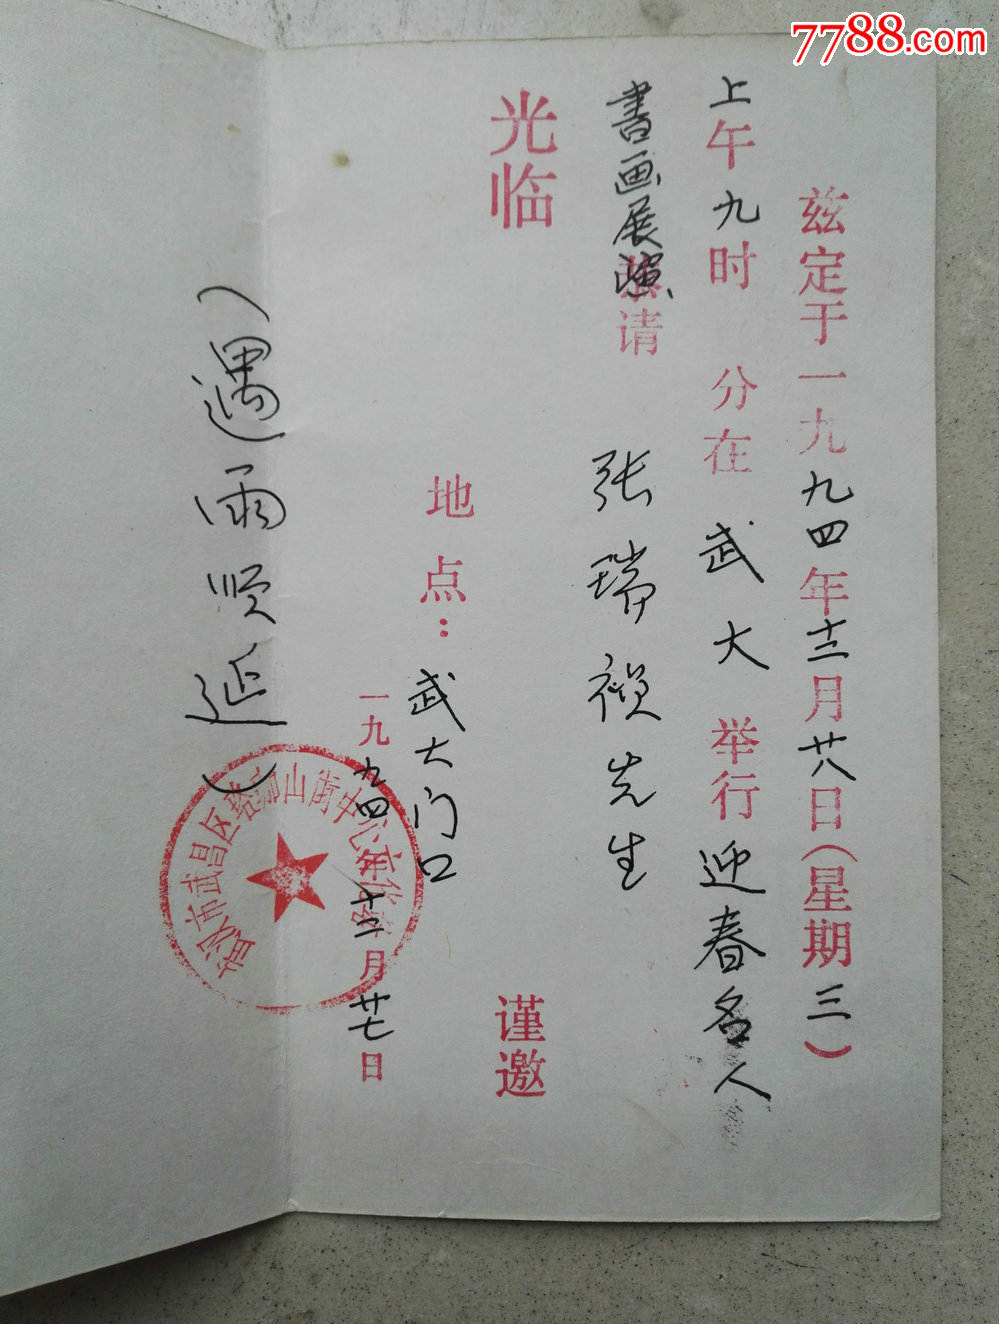 7788.com
兹定于一九九四年十二月廿八日(星期三)
上午九时 分在武大举行迎春名人
書画展演恭请
张瑞祯先生
光临
谨邀
地点:武大门口
一九九四年十二月廿七日
武汉市武昌区珞珈山街中心文化站
(遇雨顺延)